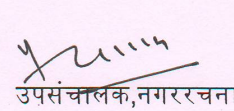 उपसंचालक,नगररचन